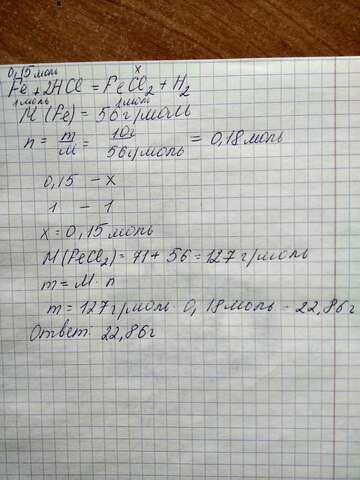 0,15 моль x
Fe + 2HCl = FeCl2 + H2
1 моль 1 моль
M (Fe) = 56 г/моль
n = m/M = 10г/56г/моль = 0,18 моль
0,15 – x
1 – 1
x = 0,15 моль
M(FeCl2) = 71 + 56 = 127 г/моль
m = M · n
m = 127 г/моль · 0,18 моль = 22,86 г
Ответ: 22,86 г